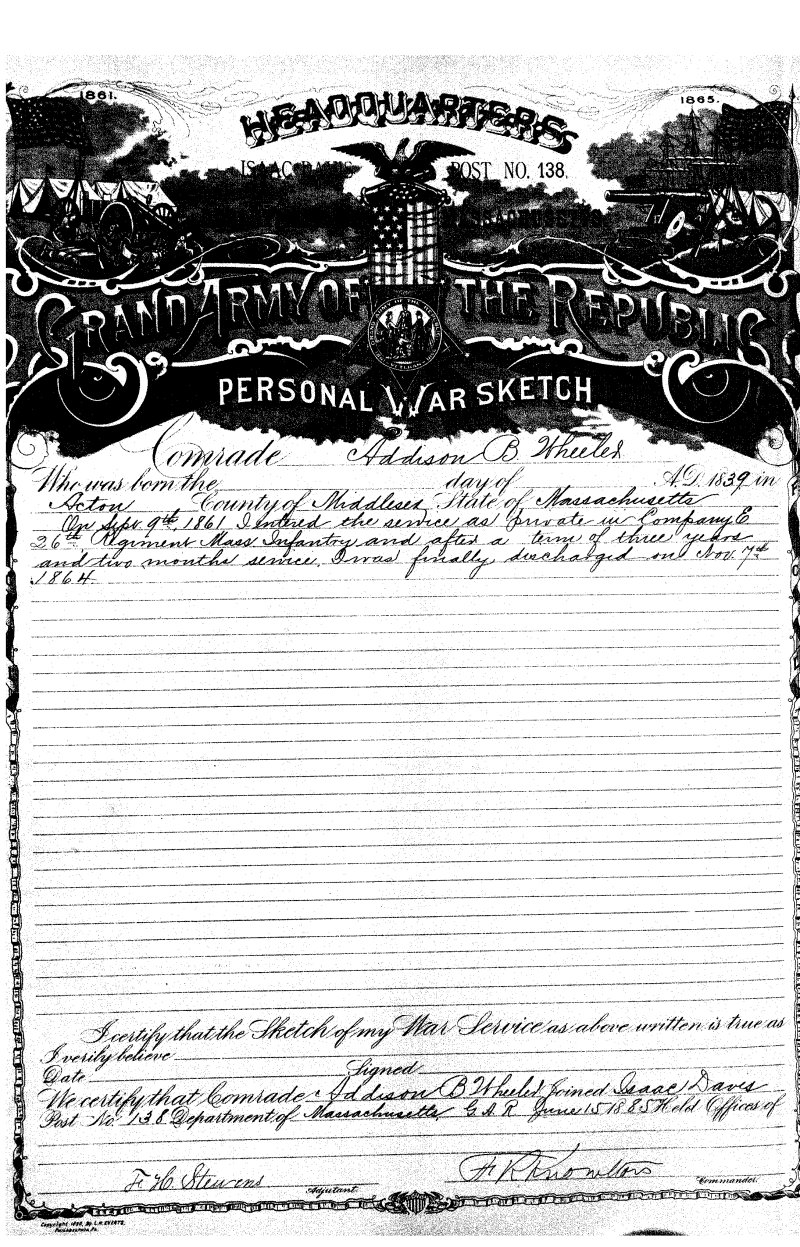 1861.
1865.
HEADQUARTERS
ISAAC DAVIS POST NO. 138.
MASSACHUSETTS
GRAND ARMY OF THE REPUBLIC
PERSONAL WAR SKETCH
Comrade Addison B Wheeler
Who was born the day of A.D. 1839 in
Acton County of Middlesex State of Massachusetts
On Sept 9th 1861 I entered the service as private in Company E
26th Regiment Mass Infantry and after a term of three years
and two months service. I was finally discharged on Nov. 7th
1864.
I certify that the Sketch of my War Service as above written is true as
I verily believe
Date Signed
We certify that Comrade Addison B Wheeler Joined Isaac Davis
Post No 138 Department of Massachusetts G.A.R June 15 1885 Held Offices of
F H Stevens Adjutant. F K Knowlton Commander.
Copyright 1890, by L.H. EVERTS.
Philadelphia, Pa.